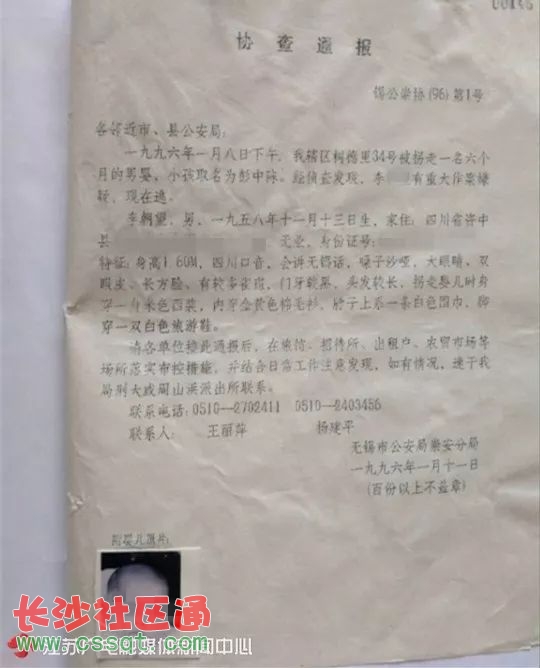 协查通报
锡公崇协(96)第1号
各邻近市、县公安局:
一九九六年一月八日下午,我辖区柯德里34号被拐走一名六个
月的男婴,小孩取名为彭中陈。经侦查发现,李 有重大作案嫌
疑,现在逃。
李朝望,男,一九五八年十一月十三日生,家住:四川省资中
县 无业,身份证号:
特征:身高1.60M,四川口音,会讲无锡话,嗓子沙哑,大眼睛、双
眼皮、长方脸、有较多雀斑,门牙较黑,头发较长,拐走婴儿时身
穿一件米色西装,内穿金黄色棉毛衫,脖子上系一条白色围巾,脚
穿一双白色旅游鞋。
请各单位接此通报后,在旅馆、招待所、出租户、农贸市场等
场所落实布控措施,并结合日常工作注意发现,如有情况,速于我
局刑大或周山浜派出所联系。
联系电话:0510--2702411 0510--2403456
联系人: 王丽萍 杨建平
无锡市公安局崇安分局
一九九六年一月十一日
(百份以上不盖章)
附婴儿照片:
长沙社区通
www.cssqt.com
融媒体新闻中心